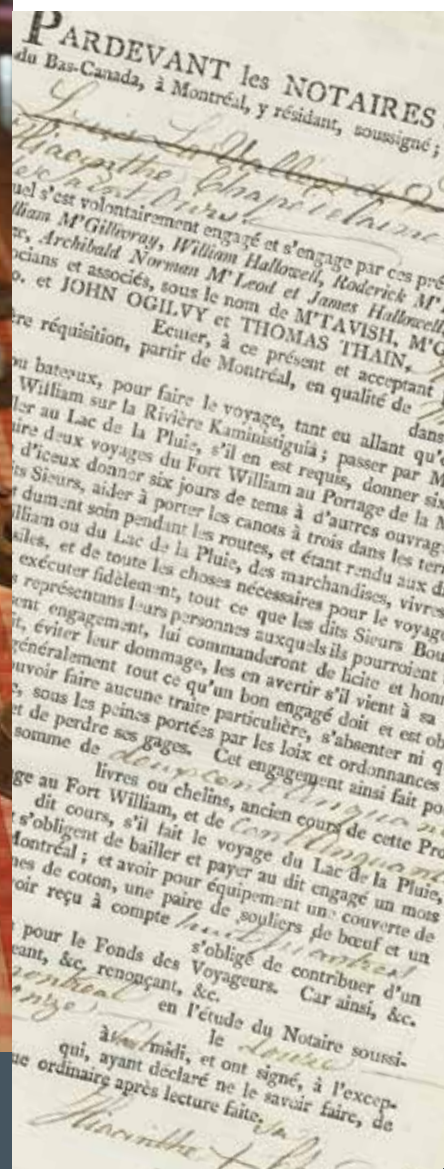 PARDEVANT les NOTAIRES
du Bas-Canada, à Montréal, y résidant, soussigné;
Hiacinthe Chapdelaine
de Saint Ours
uel s'est volontairement engagé et s'engage par ces pré
lliam M'Gillivray, William Hallowell, Roderick M'
, Archibald Norman M'Leod et James Hallowell
ocians et associés, sous le nom de M'TAVISH, M'G
o. et JOHN OGILVY et THOMAS THAIN,
Ecuier, à ce présent et acceptant
ère réquisition, partir de Montréal, en qualité de
dans
ou bateaux, pour faire le voyage, tant eu allant qu'e
William sur la Rivière Kaministiguiâ; passer par M
ler au Lac de la Pluie, s'il en est requis, donner six
ire deux voyages du Fort William au Portage de la M
d'iceux donner six jours de tems à d'autres ouvrag
its Sieurs, aider à porter les canots à trois dans les terr
t dument soin pendant les routes, et étant rendu aux di
illiam ou du Lac de la Pluie, des marchandises, vivres
siles, et de toute les choses nécessaires pour le voyage
exécuter fidèlement, tout ce que les dits Sieurs Bou
s représentans leurs personnes auxquels ils pourroient
ent engagement, lui commanderont de licite et honn
it, éviter leur dommage, les en avertir s'il vient à sa
généralement tout ce qu'un bon engagé doit et est ob
ouvoir faire aucune traite particulière, s'absenter ni q
e, sous les peines portées par les loix et ordonnances
et de perdre ses gages. Cet engagement ainsi fait pou
somme de deux cent cinquante
livres ou chelins, ancien cours de cette Pro
ge au Fort William, et de Cent Cinquante
dit cours, s'il fait le voyage du Lac de la Pluie,
s'obligent de bailler et payer au dit engagé un mois
Montréal; et avoir pour équipement une couverte de
nes de coton, une paire de souliers de bœuf et un
oir reçu à compte huit piastres
s'obligé de contribuer d'un
pour le Fonds des Voyageurs. Car ainsi, &c.
eant, &c. renonçant, &c.
montreal en l'étude du Notaire soussi-
onze le douze
à midi, et ont signé, à l'excep-
qui, ayant déclaré ne le savoir faire, de
ue ordinaire après lecture faite,
Hiacinthe